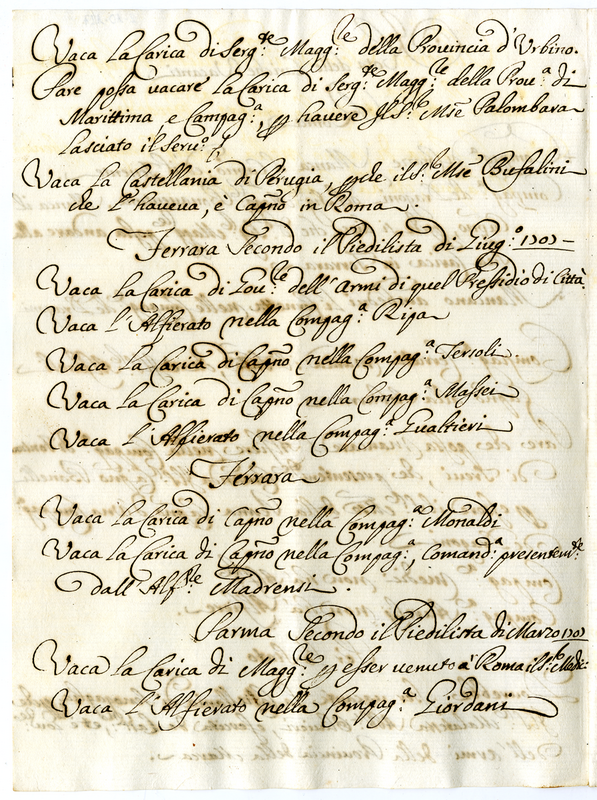 Vaca la Carica di Serg:te Magg:re della Provincia d'Urbino.
Pare possa vacare la Carica di Serg:te Magg:re della Prov:a di
Marittima e Campag:a, p havere Il S:r Mse Palombara
lasciato il Serv:o
Vaca la Castellania di Perugia, pche il S:r Mse Bufalini
che l'haveva, è Capño in Roma.
Ferrara Secondo il Piedilista di Giug:o 1707
Vaca la Carica di Gov:re dell'Armi di quel Pressidio di Città
Vaca l'Alfierato nella Compag:a Ripa
Vaca la Carica di Capño nella Compag:a Tersoli.
Vaca la Carica di Capño nella Compag:a Massei
Vaca l'Alfierato nella Compag:a Gualtieri
Ferrara
Vaca la Carica di Capño nella Compag:a Monaldi
Vaca la Carica di Capño nella Compag:a, Comand:a presentem:te
dall'Alf:re Madrensi.
Parma Secondo il Piedilista di Marzo 1707
Vaca la Carica di Magg:re p esser venuto à Roma il S:r
Vaca l'Alfierato nella Compag:a Giordani